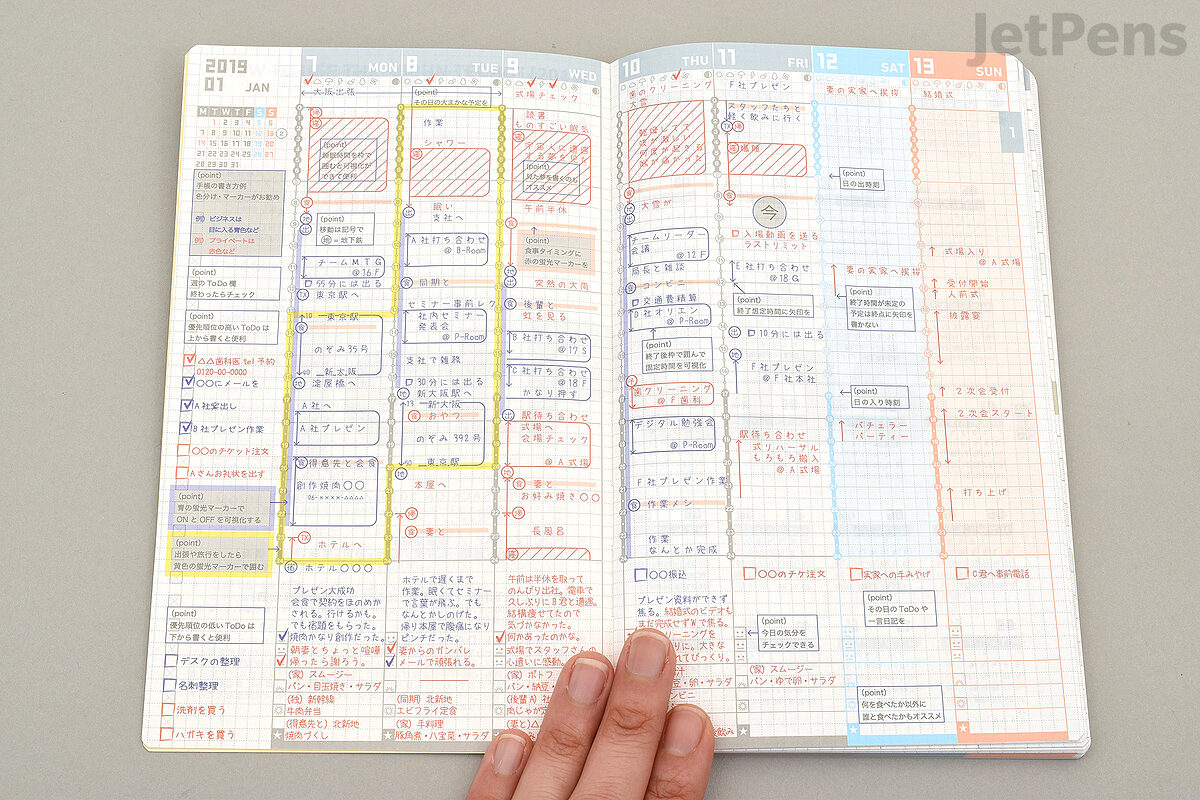 JetPens
2019
01 JAN
M T W T F S S
1 2 3 4 5 6
7 8 9 10 11 12 13
14 15 16 17 18 19 20
21 22 23 24 25 26 27
28 29 30 31
(point)
手帳の書き方例
色分け・マーカーがお勧め
例) ビジネスは
目に入る青色など
例) プライベートは
赤色など
(point)
週のToDo欄
終わったらチェック
(point)
優先順位の高いToDoは
上から書くと便利
△△歯科医 tel予約
0120-00-0000
○○にメールを
A社宏出し
B社プレゼン作業
○○のチケット注文
Aさんお礼状を出す
(point)
青の蛍光マーカーで
ONとOFFを可視化する
(point)
出張や旅行をしたら
黄色の蛍光マーカーで囲む
(point)
優先順位の低いToDoは
下から書くと便利
デスクの整理
名刺整理
洗剤を買う
ハガキを買う
7 MON
大阪出張
(point)
睡眠時間を枠で
囲むと可視化が
できて便利
(point)
移動は記号で
地=地下鉄
チームMTG
@16F
55分には出る
東京駅へ
10 東京駅
のぞみ35号
新大阪
淀屋橋へ
A社へ
A社プレゼン
得意先と会食
創作焼肉○○
06-××××-△△△△
ホテルへ
ホテル○○○
プレゼン大成功
会食で契約をほのめか
される。行けるかも。
でも宿題をもらった。
焼肉かなり創作だった。
朝妻とちょっと喧嘩
帰ったら謝ろう。
(家) スムージー
パン・目玉焼き・サラダ
(独) 新幹線
牛肉弁当
(得意先と) 北新地
焼肉づくし
8 TUE
(point)
その日の大まかな予定を
作業
シャワー
眠い
支社へ
A社打ち合わせ
@B-Room
同期と
セミナー事前レク
社内セミナー
発表会
@P-Room
支社で雑務
30分には出る
新大阪駅へ
13 新大阪
おやつ
のぞみ392号
東京駅
本屋へ
妻と
ホテルで遅くまで
作業。眠くてセミナー
で言葉が飛ぶ。でも
なんとかしのげた。
帰り本屋で腹痛になり
ピンチだった。
妻からのガンバレ
メールで頑張れる。
(同期) 北新地
エビフライ定食
(家) 手料理
豚角煮・八宝菜・サラダ
9 WED
式場チェック
読書
ものすごい眠気
宇宙人に遭遇
する夢を見た
(point)
見た夢を書くのも
オススメ
午前半休
(point)
食事タイミングに
赤の蛍光マーカーを
突然の大雨
後輩と
虹を見る
B社打ち合わせ
@17S
C社打ち合わせ
@18F
かなり押す
駅待ち合わせ
式場へ
会場チェック
@A式場
妻と
お好み焼き○○
長風呂
午前は半休を取って
のんびり出社。電車で
久しぶりにB君と遭遇。
結構痩せてたので
気づかなかった。
何かあったのかな。
式場でスタッフさんの
心遣いに感動。
(家) ポトフ
パン・納豆・
(後輩A) 社
肉じゃが定
10 THU
歯のクリーニング
大雪
大雪が
チームリーダー
会議 @12F
局長と雑談
コンビニ
交通費精算
D社オリエン
@P-Room
(point)
終了後枠で囲んで
固定時間を可視化
歯クリーニング
@F歯科
デジタル勉強会
@P-Room
F社プレゼン作業
作業メシ
作業
なんとか完成
○○振込
プレゼン資料ができず
焦る。結婚式のビデオも
まだ完成せずWで焦る。
11 FRI
F社プレゼン
スタッフたちと
軽く飲みに行く
爆睡
今
入場動画を送る
ラストリミット
E社打ち合わせ
@18G
(point)
終了想定時間に矢印を
10分には出る
F社プレゼン
@F社本社
駅待ち合わせ
式リハーサル
もろもろ搬入
@A式場
○○のチケ注文
(point)
今日の気分を
チェックできる
(家) スムージー
パン・ゆで卵・サラダ
12 SAT
妻の実家へ挨拶
(point)
日の出時刻
妻の実家へ挨拶
(point)
終了時間が未定の
予定は終点に矢印を
書かない
(point)
日の入り時刻
バチェラー
パーティー
実家への手みやげ
(point)
その日のToDoや
一言日記を
(point)
何を食べたか以外に
誰と食べたかもオススメ
13 SUN
結婚式
1
式場入り
@A式場
受付開始
人前式
披露宴
2次会受付
2次会スタート
打ち上げ
C君へ事前電話